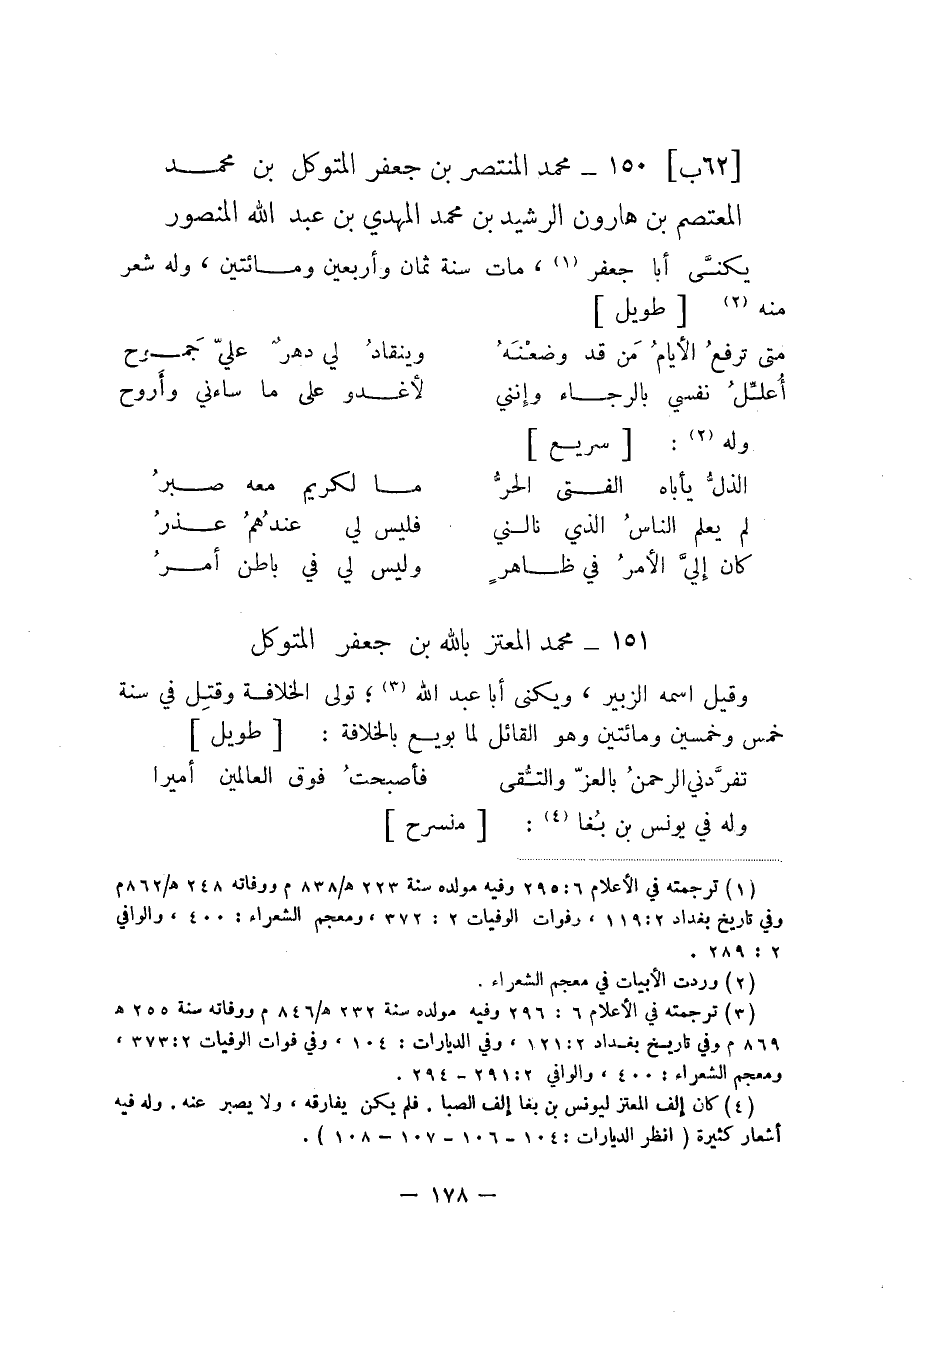 [٦٢ب] ١٥٠ ـ محمد المنتصر بن جعفر المتوكل بن محمـــد
المعتصم بن هارون الرشيد بن محمد المهدي بن عبد الله المنصور
يكنَّى أبا جعفر (١) ، مات سنة ثمان وأربعين ومــائتين ، وله شعر
منه (٢) [ طويل ]
متى ترفعُ الأيامُ مَن قد وضعْنَهُ وينقادُ لي دهرٌ عليّ جَمــوح
أُعلّلُ نفسي بالرجــاء وإنني لأغــدو على ما ساءني وأَروح
وله (٢) : [ سريـع ]
الذلُّ يأباه الفــتى الحرُّ مــا لكريم معه صــبرُ
لم يعلم الناسُ الذي نالني فليس لي عندهُمُ عــذرُ
كان إليَّ الأمرُ في ظــاهرٍ وليس لي في باطن أمــرُ
١٥١ ـ محمد المعتز بالله بن جعفر المتوكل
وقيل اسمه الزبير ، ويكنى أبا عبد الله (٣) ؛ تولى الخلافـة وقتِل في سنة
خمس وخمسين ومائتين وهو القائل لما بويـع بالخلافة : [ طويل ]
تفرَّدني الرحمنُ بالعزّ والتُّقى فأصبحتُ فوق العالمين أميرا
وله في يونس بن بُغا (٤) : [ منسرح ]
(١) ترجمته في الأعلام ٢٩٥:٦ وفيه مولده سنة ٢٢٣ ه/٨٣٨ م ووفاته ٢٤٨ ه/٨٦٢م
وفي تاريخ بغداد ١١٩:٢ ، وفوات الوفيات ٢ : ٣٧٢ ، ومعجم الشعراء : ٤٠٠ ، والوافي
٢ : ٢٨٩ .
(٢) وردت الأبيات في معجم الشعراء .
(٣) ترجمته في الأعلام ٦ : ٢٩٦ وفيه مولده سنة ٢٣٢ ه/٨٤٦ م ووفاته سنة ٢٥٥ ه
٨٦٩ م وفي تاريـخ بغـداد ١٢١:٢ ، وفي الديارات : ١٠٤ ، وفي فوات الوفيات ٣٧٣:٢ ،
ومعجم الشعراء : ٤٠٠ ، والوافي ٢٩١:٢ ـ ٢٩٤ .
(٤) كان إلف المعتز ليونس بن بغا إلف الصبا . فلم يكن يفارقه ، ولا يصبر عنه . وله فيه
أشعار كثيرة ( انظر الديارات : ١٠٤ ـ ١٠٦ ـ ١٠٧ ـ ١٠٨ ) .
— ١٧٨ —